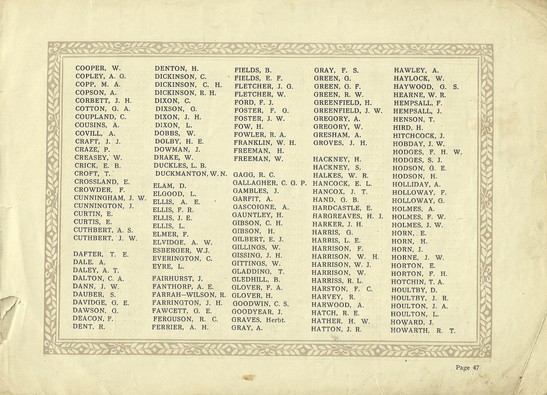 COOPER, W.
COPLEY, A. G.
COPP, M. A.
COPSON, A.
CORBETT, J. H.
COTTON, G. A.
COUPLAND, C.
COUSINS, A.
COVILL, A.
CRAFT, J. J.
CRAZE, P.
CREASEY, W.
CRICK, E. B.
CROFT, T.
CROSSLAND, E.
CROWDER, F.
CUNNINGHAM, J. W.
CUNNINGTON, J.
CURTIN, E.
CURTIS, E.
CUTHBERT, A. S.
CUTHBERT, J. W.
DAFTER, T. E.
DALE, A.
DALEY, A. T.
DALTON, C. A.
DANN, J. W.
DAUBER, S.
DAVIDGE, G. E.
DAWSON, G.
DEACON, F.
DENT, R.
DENTON, H.
DICKINSON, C.
DICKINSON, C. H.
DICKINSON, R. H.
DIXON, C.
DIXSON, G.
DIXON, J. H.
DIXON, L.
DOBBS, W.
DOLBY, H. E.
DOWMAN, J.
DRAKE, W.
DUCKLES, L. B.
DUCKMANTON, W. N.
ELAM, D.
ELGOOD, L.
ELLIS, A. E.
ELLIS, F. R.
ELLIS, J. E.
ELLIS, L.
ELMER, F.
ELVIDGE, A. W.
ESBERGER, W. J.
EVERINGTON, C.
EYRE, L.
FAIRHURST, J.
FANTHORP, A. E.
FARRAH—WILSON, R.
FARRINGTON, J. H.
FAWCETT, G. E.
FERGUSON, R. C.
FERRIER, A. H.
FIELDS, B.
FIELDS, E. F.
FLETCHER, J. G.
FLETCHER, W.
FORD, F. J.
FOSTER, F. G.
FOSTER, J. W.
FOW, H.
FOWLER, R. A.
FRANKLIN, W. H.
FREEMAN, H.
FREEMAN, W.
GAGG, R. C.
GALLAGHER, C. G. P.
GAMBLES, J.
GARFIT, A.
GASCOIGNE, A.
GAUNTLEY, H.
GIBSON, C. H.
GIBSON, H.
GILBERT, E. J.
GILLINGS, W.
GISSING, J. H.
GITTINGS, W.
GLADDING, T.
GLEDHILL, B.
GLOVER, F. A.
GLOVER, H.
GOODWIN, C. S.
GOODYEAR, J.
GRAVES, Herbt.
GRAY, A.
GRAY, F. S.
GREEN, G.
GREEN, G. F.
GREEN, R. W.
GREENFIELD, H.
GREENFIELD, J. W.
GREGORY, A.
GREGORY, W.
GRESHAM, A.
GROVES, J. H.
HACKNEY, H.
HACKNEY, S.
HALKES, W. R.
HANCOCK, E. L.
HANCOX, J. T.
HAND, G. B.
HARDCASTLE, E.
HARGREAVES, H. J.
HARKER, J. H.
HARRIS, G.
HARRIS, L. E.
HARRISON, F.
HARRISON, W. H.
HARRISON, W. J.
HARRISON, W.
HARRISS, R. L.
HARSTON, F. C.
HARVEY, R.
HARWOOD, A.
HATCH, R. E.
HATHER, H. W.
HATTON, J. R.
HAWLEY, A.
HAYLOCK, W.
HAYWOOD, G. S.
HEARNE, W. R.
HEMPSALL, F.
HEMPSALL, J.
HENSON, T.
HIRD, H.
HITCHCOCK, J.
HOBDAY, J. W.
HODGES, F. H. W.
HODGES, S. J.
HODSON, G. E.
HODSON, H.
HOLLIDAY, A.
HOLLOWAY, F.
HOLLOWAY, G.
HOLMES, A.
HOLMES, F. W.
HOLMES, J. W.
HORN, E.
HORN, H.
HORN, J.
HORNE, J. W.
HORTON, E.
HORTON, F. H.
HOTCHIN, T. A.
HOULTBY, D.
HOULTBY, J. R.
HOULTON, J. A.
HOULTON, L.
HOWARD, J.
HOWARTH, R. T.
Page 47